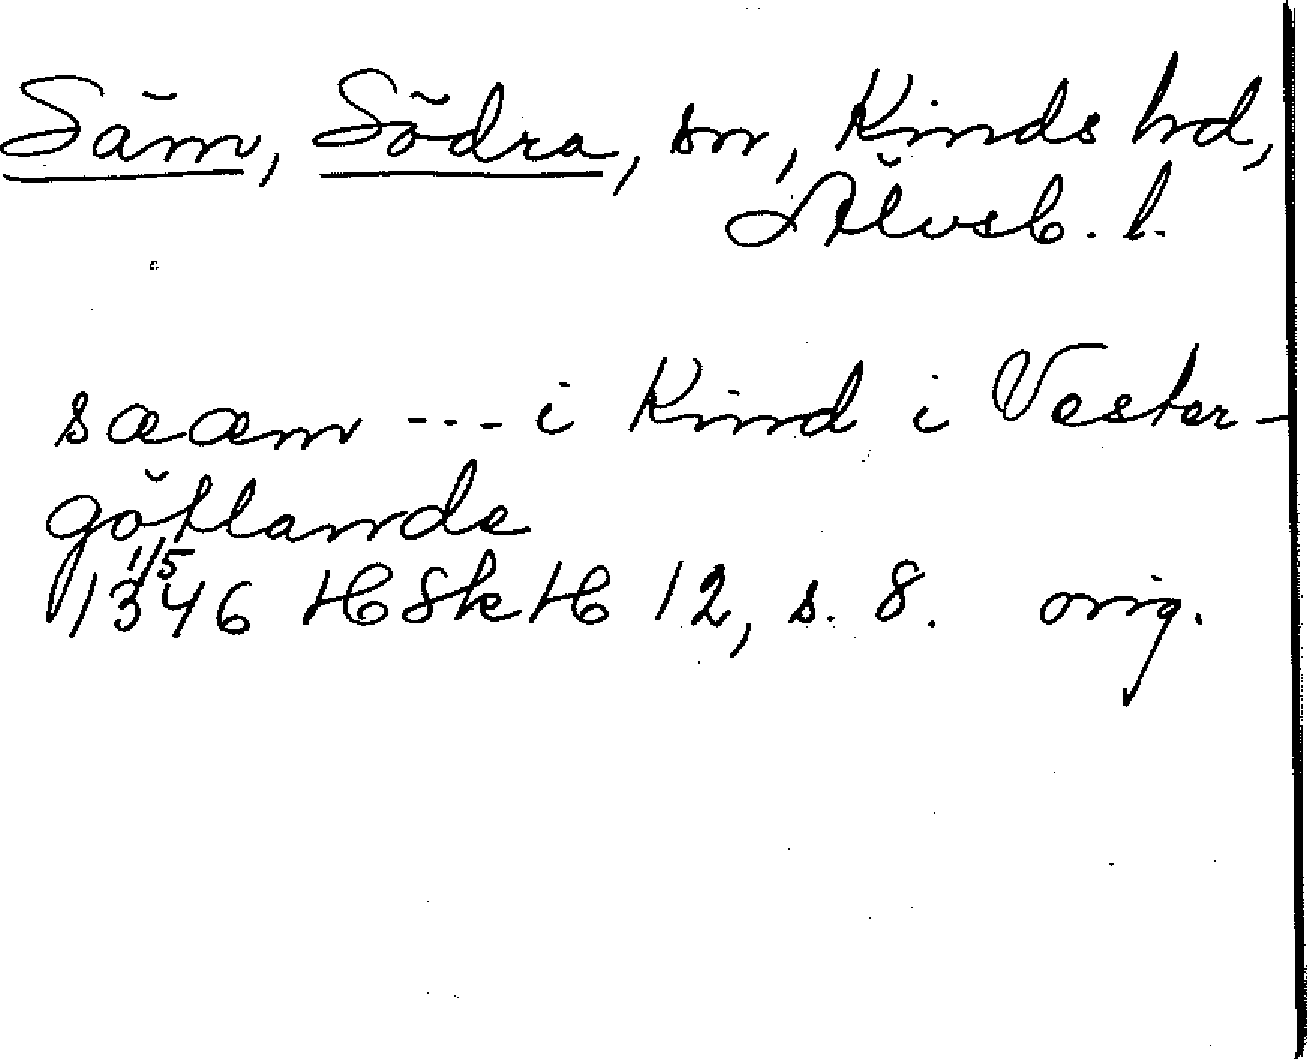 Säm, Södra, sn, Kinds hd,
Älvsb. l.
sææm --- i Kind i Vester-
götlande
1/5
1346 HSkH 12, s. 8. orig.